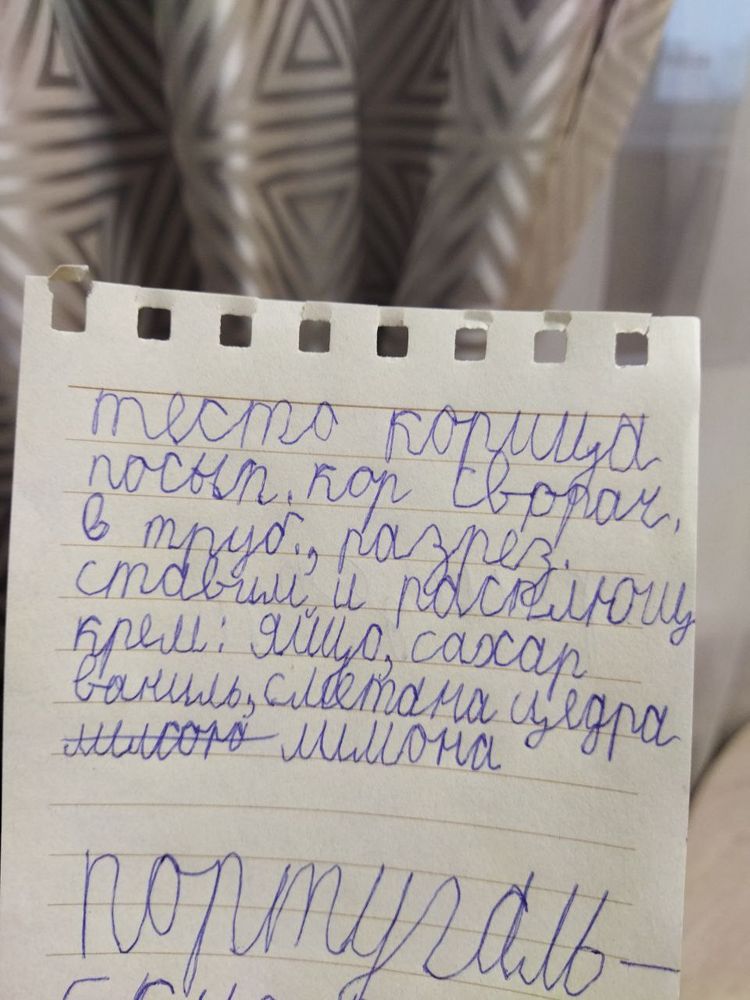 тесто корица
посып. кор сворач.
в труб., разрез.
ставим и расплющ
крем: яйцо, сахар
ваниль, сметана цедра
лимона
португаль-